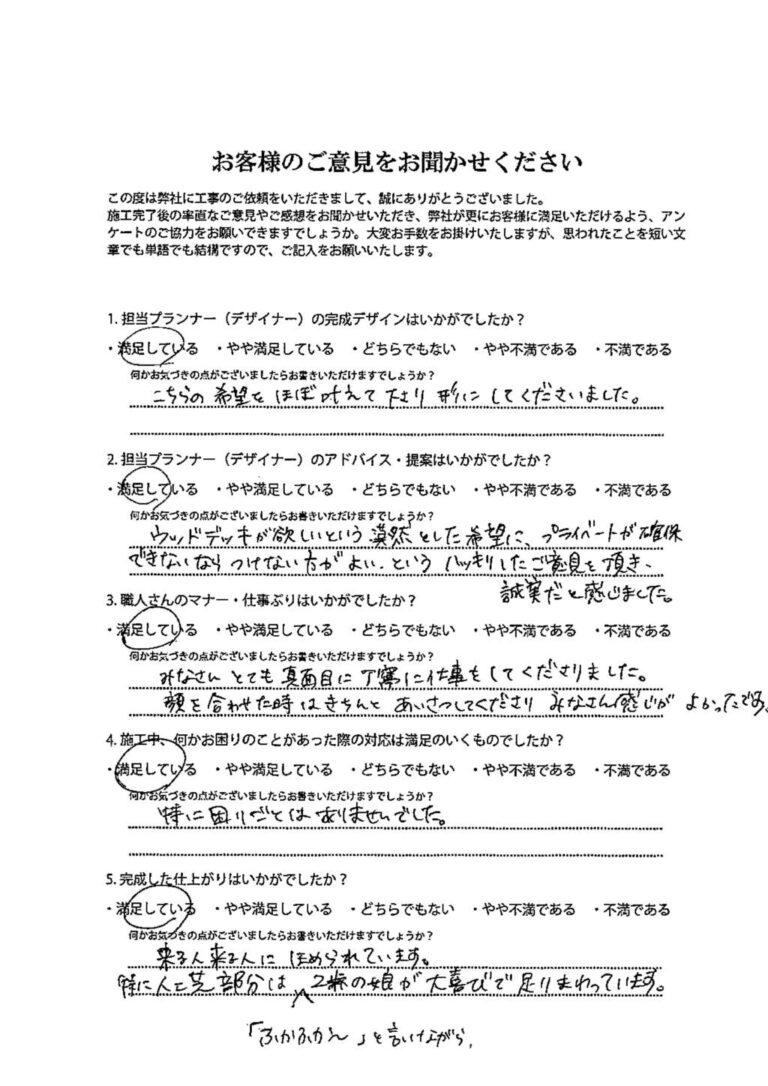 お客様のご意見をお聞かせください
この度は弊社に工事のご依頼をいただきまして、誠にありがとうございました。
施工完了後の率直なご意見やご感想をお聞かせいただき、弊社が更にお客様に満足いただけるよう、アン
ケートのご協力をお願いできますでしょうか。大変お手数をお掛けいたしますが、思われたことを短い文
章でも単語でも結構ですので、ご記入をお願いいたします。
1. 担当プランナー（デザイナー）の完成デザインはいかがでしたか？
・満足している ・やや満足している ・どちらでもない ・やや不満である ・不満である
何かお気づきの点がございましたらお書きいただけますでしょうか？
こちらの希望をほぼ叶えて下さり形にしてくださいました。
2. 担当プランナー（デザイナー）のアドバイス・提案はいかがでしたか？
・満足している ・やや満足している ・どちらでもない ・やや不満である ・不満である
何かお気づきの点がございましたらお書きいただけますでしょうか？
ウッドデッキが欲しいという漠然とした希望に、プライベートが確保
できないならつけない方がよい、というハッキリしたご意見を頂き、
誠実だと感じました。
3. 職人さんのマナー・仕事ぶりはいかがでしたか？
・満足している ・やや満足している ・どちらでもない ・やや不満である ・不満である
何かお気づきの点がございましたらお書きいただけますでしょうか？
みなさんとても真面目に丁寧に仕事をしてくださりました。
顔を合わせた時はきちんとあいさつしてくださりみなさん感じがよかったです。
4. 施工中、何かお困りのことがあった際の対応は満足のいくものでしたか？
・満足している ・やや満足している ・どちらでもない ・やや不満である ・不満である
何かお気づきの点がございましたらお書きいただけますでしょうか？
特に困りごとはありませんでした。
5. 完成した仕上がりはいかがでしたか？
・満足している ・やや満足している ・どちらでもない ・やや不満である ・不満である
何かお気づきの点がございましたらお書きいただけますでしょうか？
来る人来る人にほめられています。
特に人工芝部分は 2歳の娘が大喜びで走りまわっています。
「ふかふか〜」と言いながら、